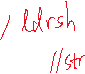 / ldrsh
//str